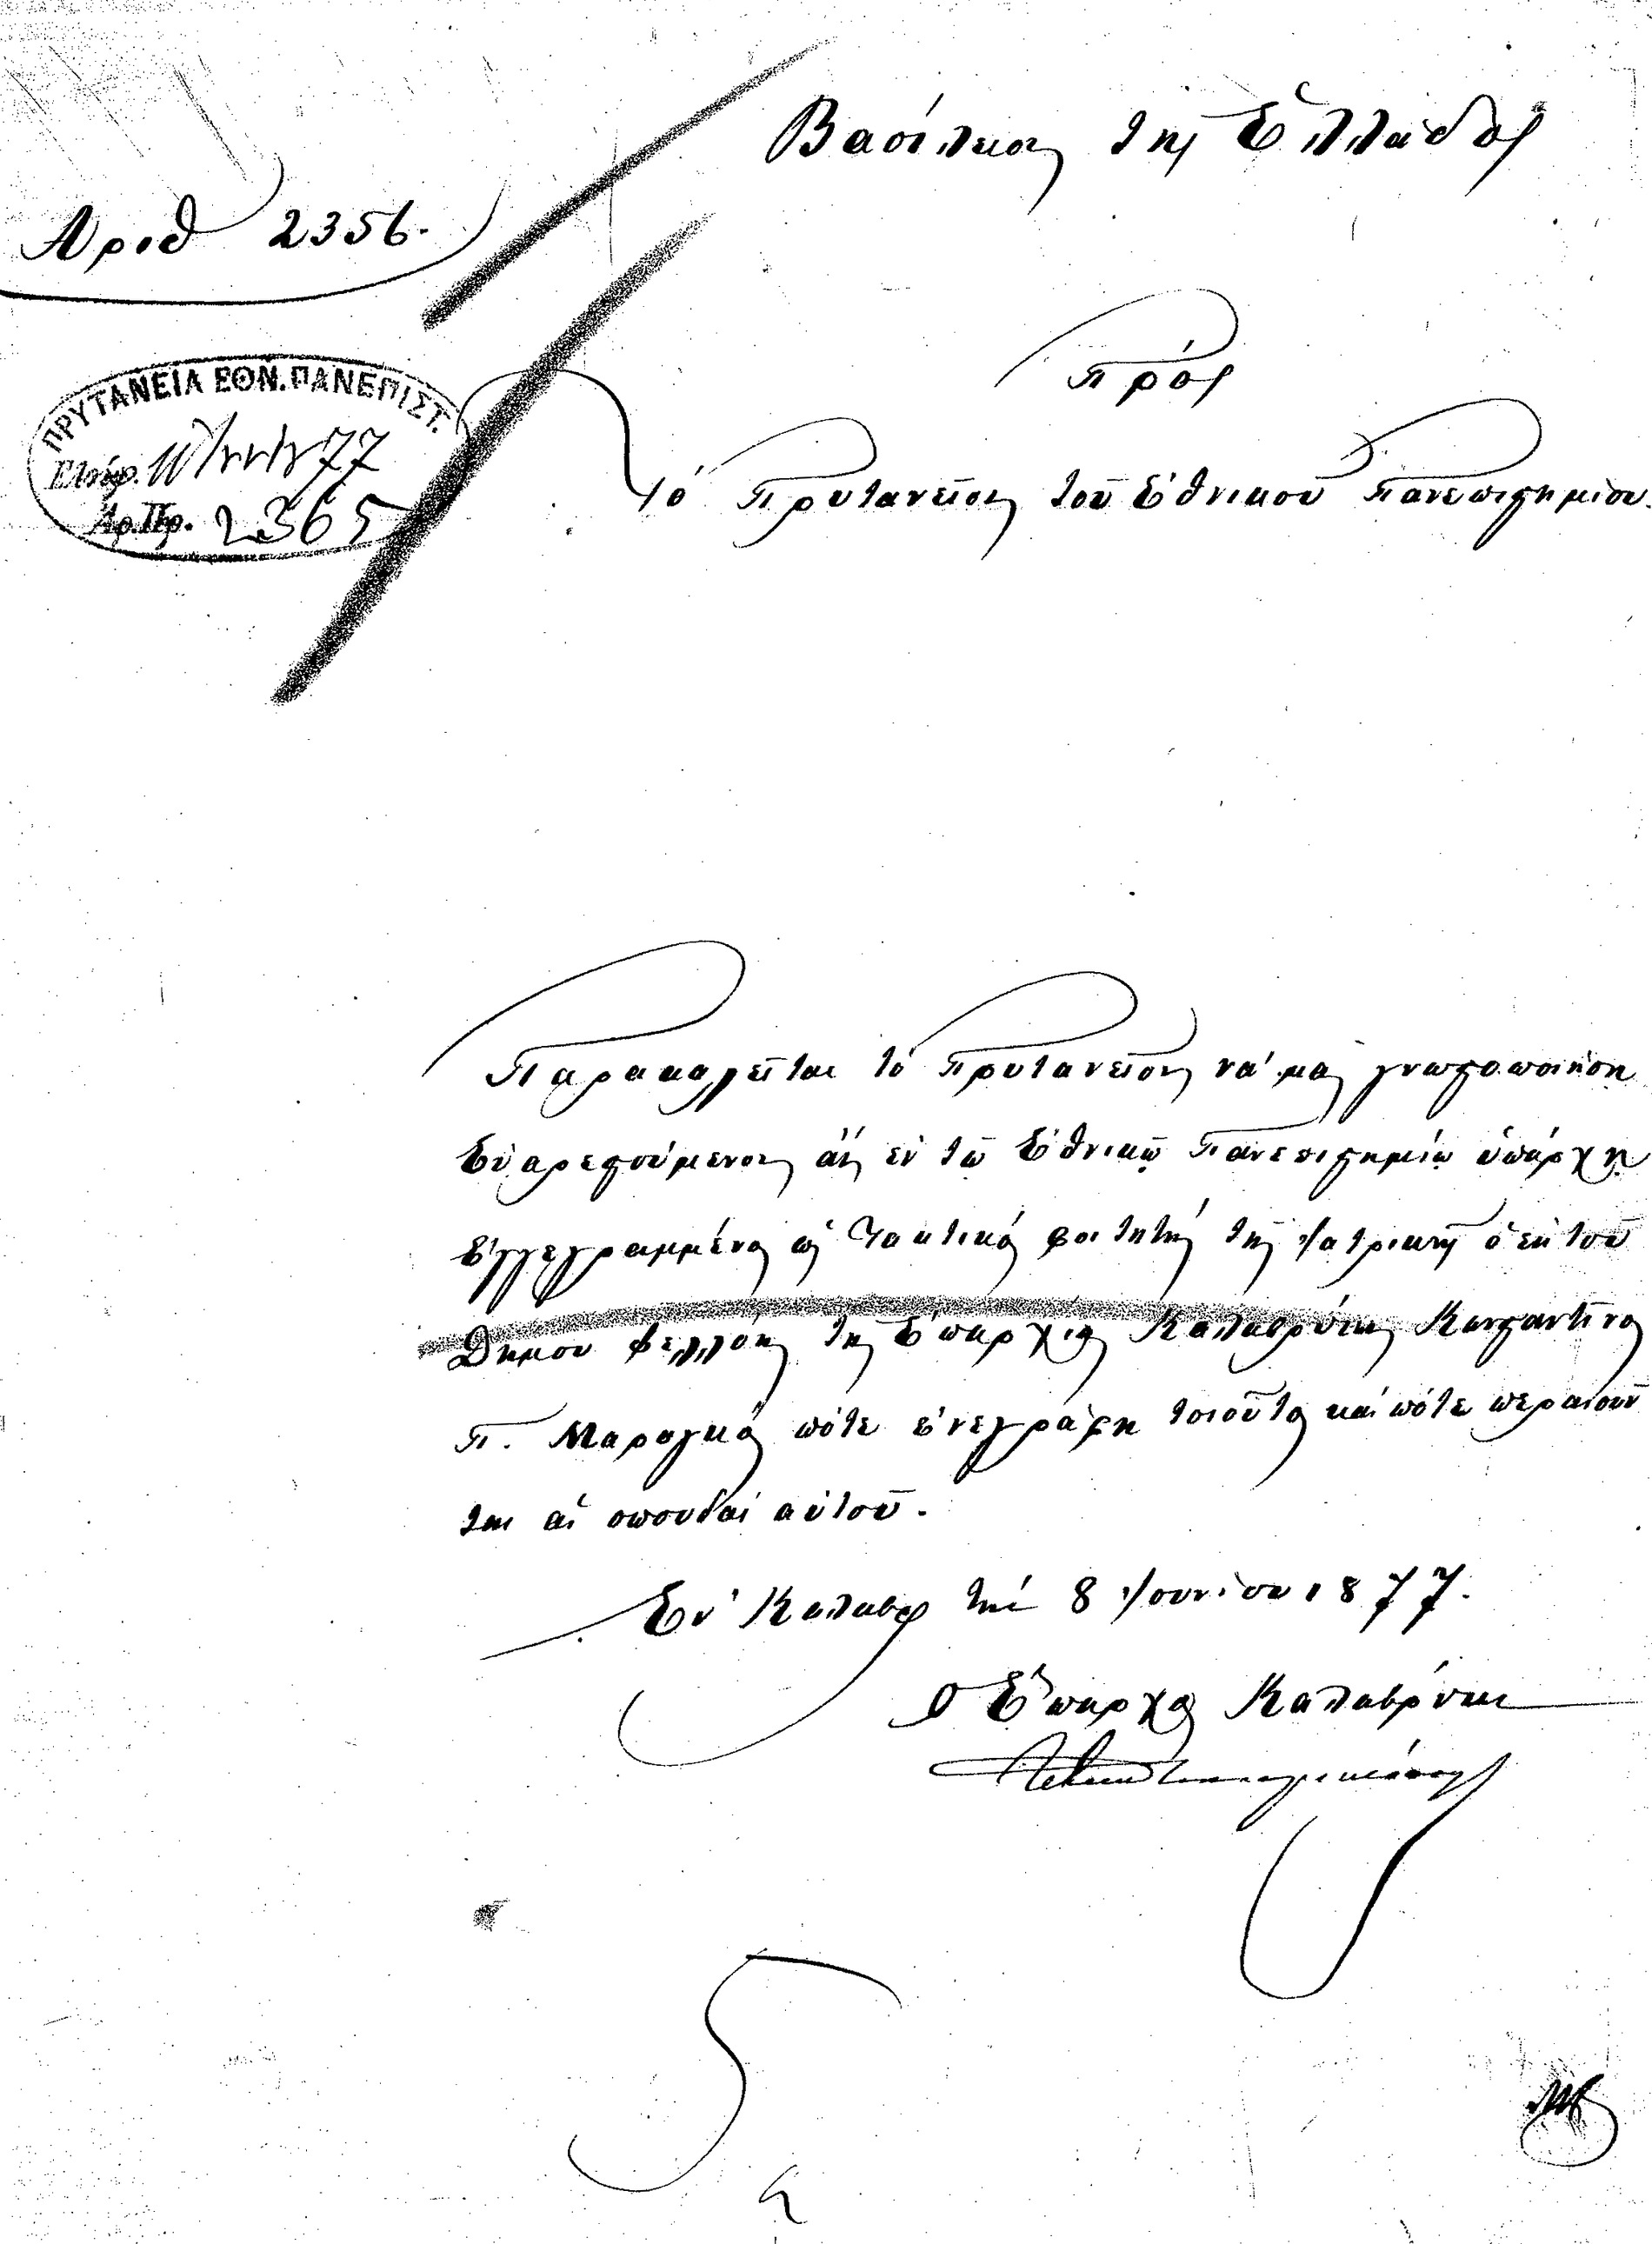 Βασίλειον της Ἑλλάδος
Αριθ 2356.
Πρός
ΠΡΥΤΑΝΕΙΑ ΕΘΝ. ΠΑΝΕΠΙΣΤ.
77
Ἀρ. Πρ. 2365
Τό Πρυτανεῖον τοῦ Ἐθνικοῦ Πανεπιστημίου.
Παρακαλεῖται τό Πρυτανεῖον νά μας γνωστοποιήση
εὐαρεστούμενον ἄν ἐν τῶ Ἐθνικῶ Πανεπιστημίω ὑπάρχη
ἐγγεγραμμένος ὡς Τακτικός φοιτητής τῆς Ἰατρικῆς ὁ ἐκ τοῦ
Δημου Φελλόης της Ἐπαρχίας Καλαβρύτων Κωνσταντῖνος
Π. Μαραγκός πότε ἐνεγράφη τοιοῦτος καί πότε περαιοῦν
ται αἱ σπουδαί αὐτοῦ.
Ἐν Καλαβρ τήν 8 Ἰουνίου 1877.
Ο Ἔπαρχος Καλαβρύτων